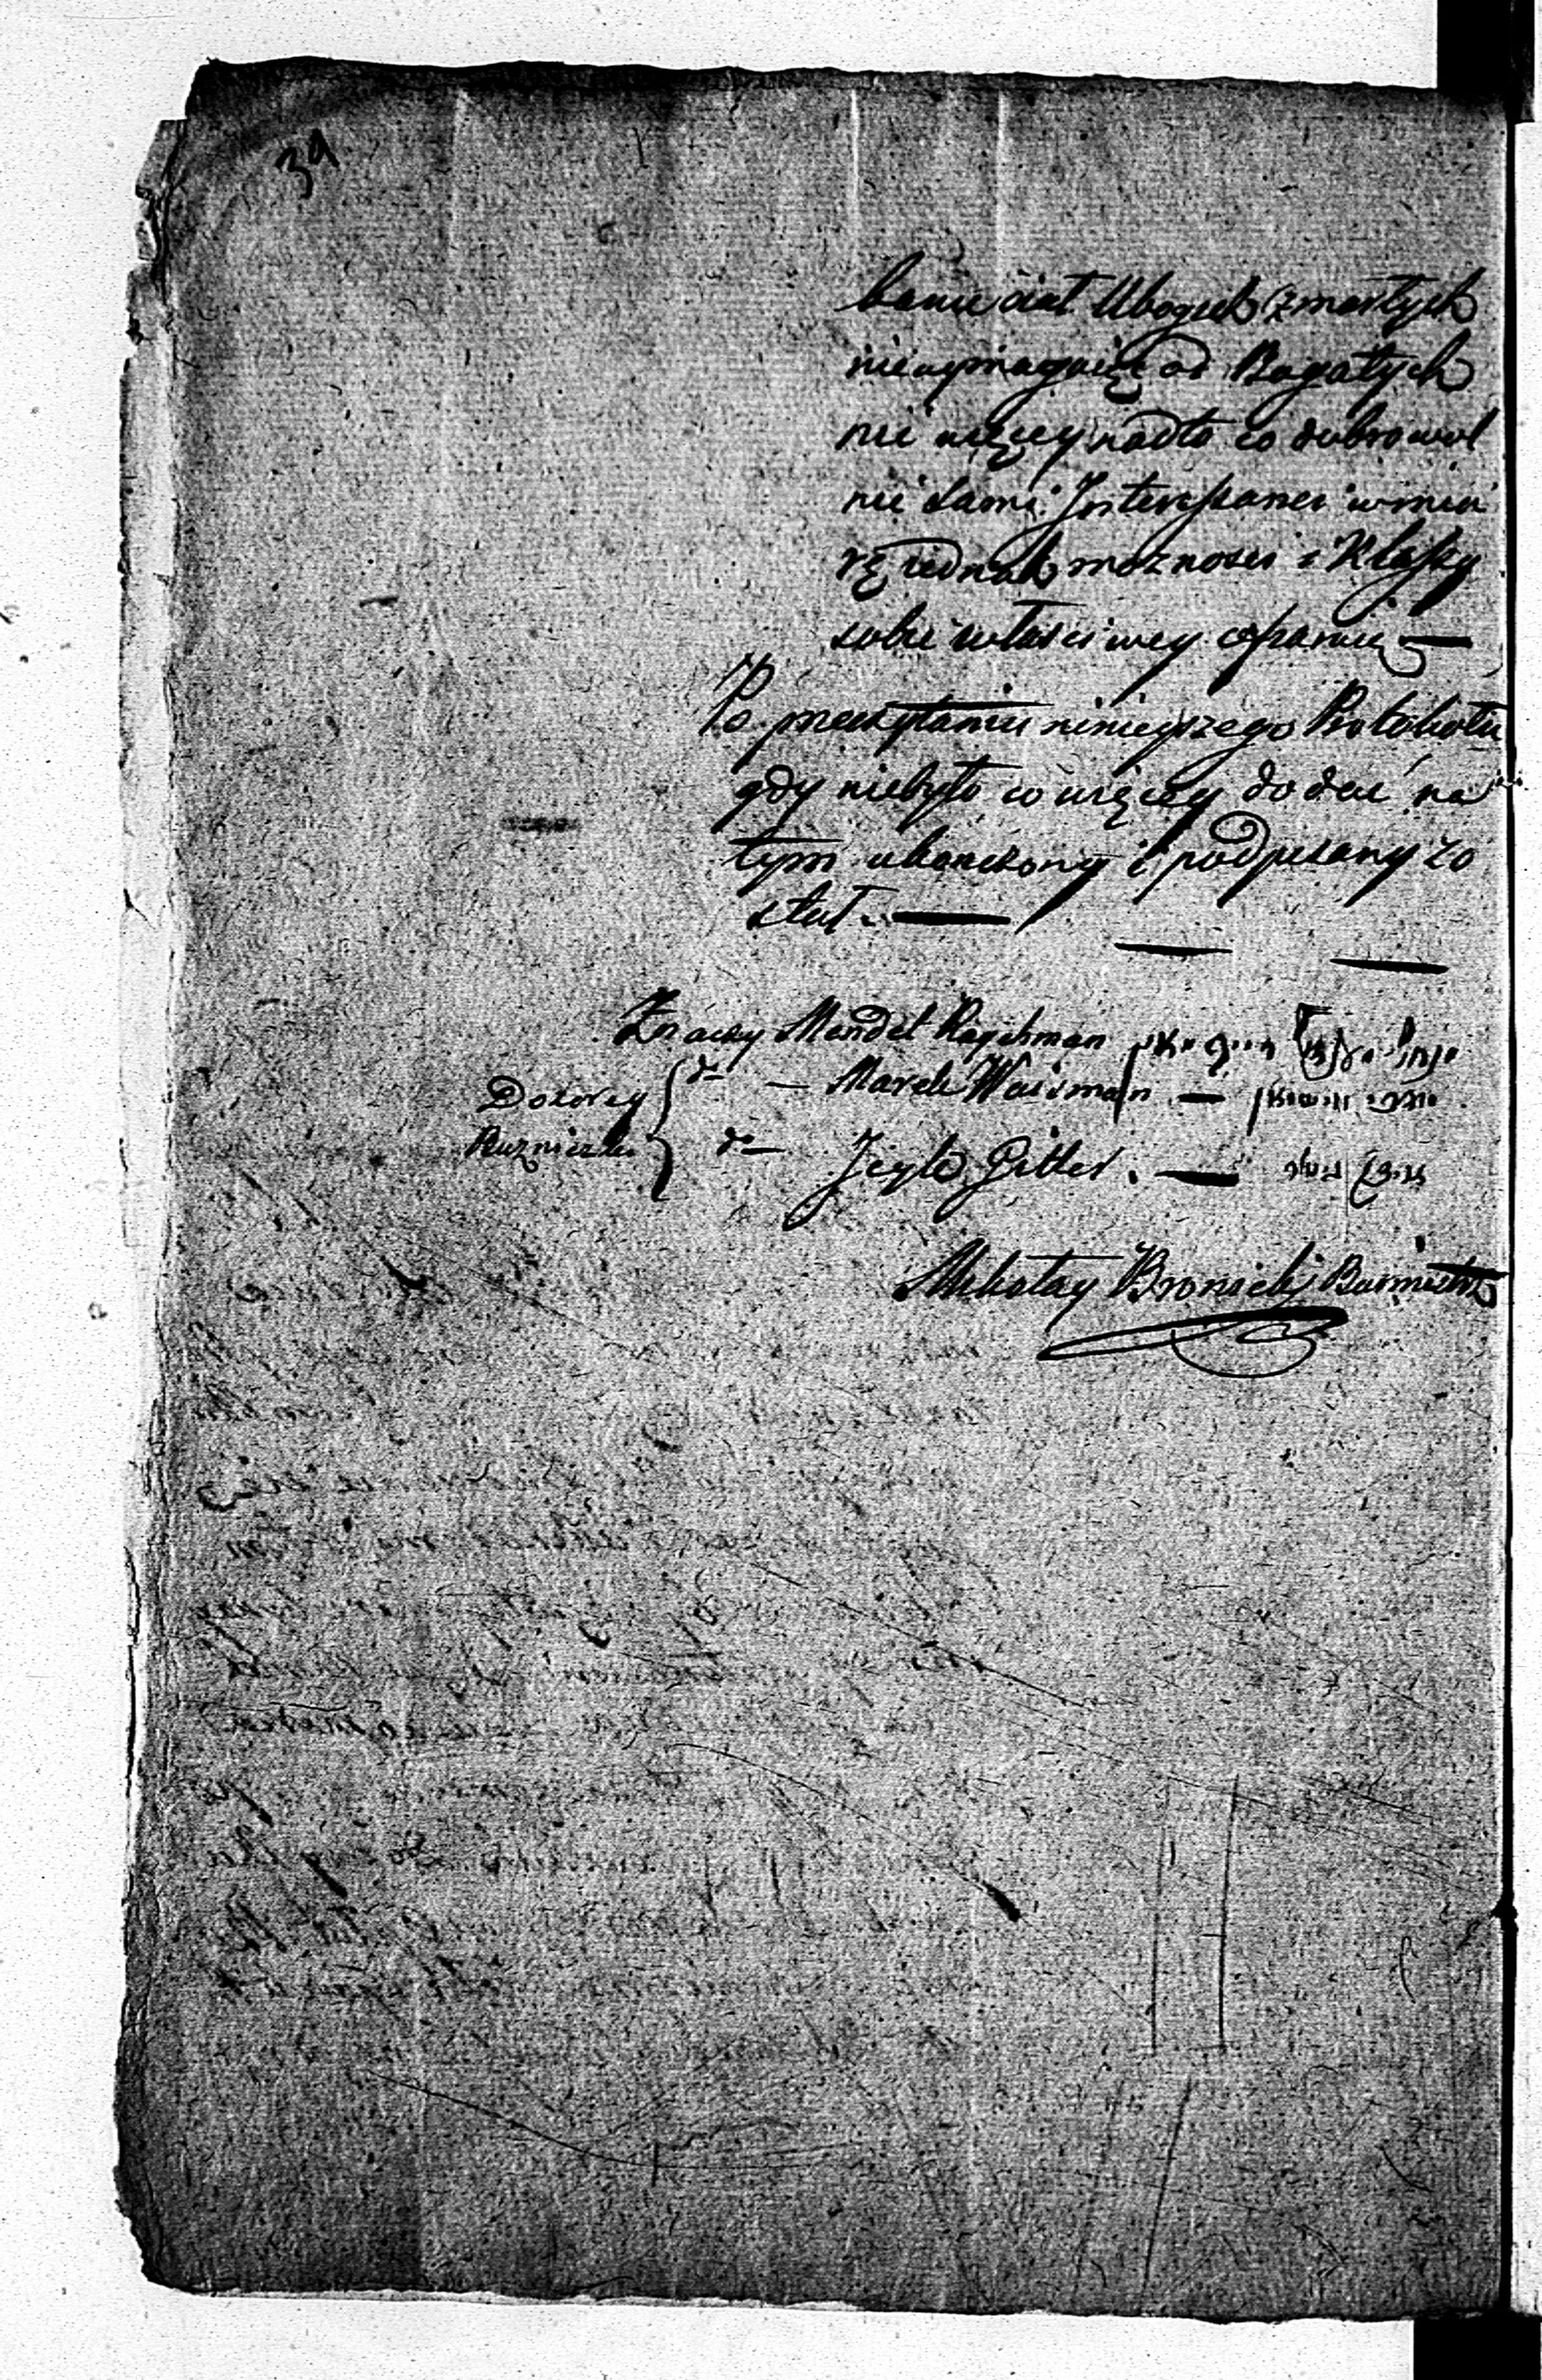 39
banie ciał Ubogich zmarłych
niewymagaiąc od Bogatych
nic więcey nadto co dobrowol
nie sami Interessanci w mia
rę iednak możności i Klassy
sobie właściwey ofiaruią —
Po przeczytaniu ninieyszego Protokołu
gdy niebyło co więcey dodać na
tym ukonczony i podpisany zo
stał. —
Znaczy Mendel Raychman
Dozorcy do — Marek Waisman —
Bużniczni do — Jcyk Gitler. —
Mikołay Bronicki Burmistrz